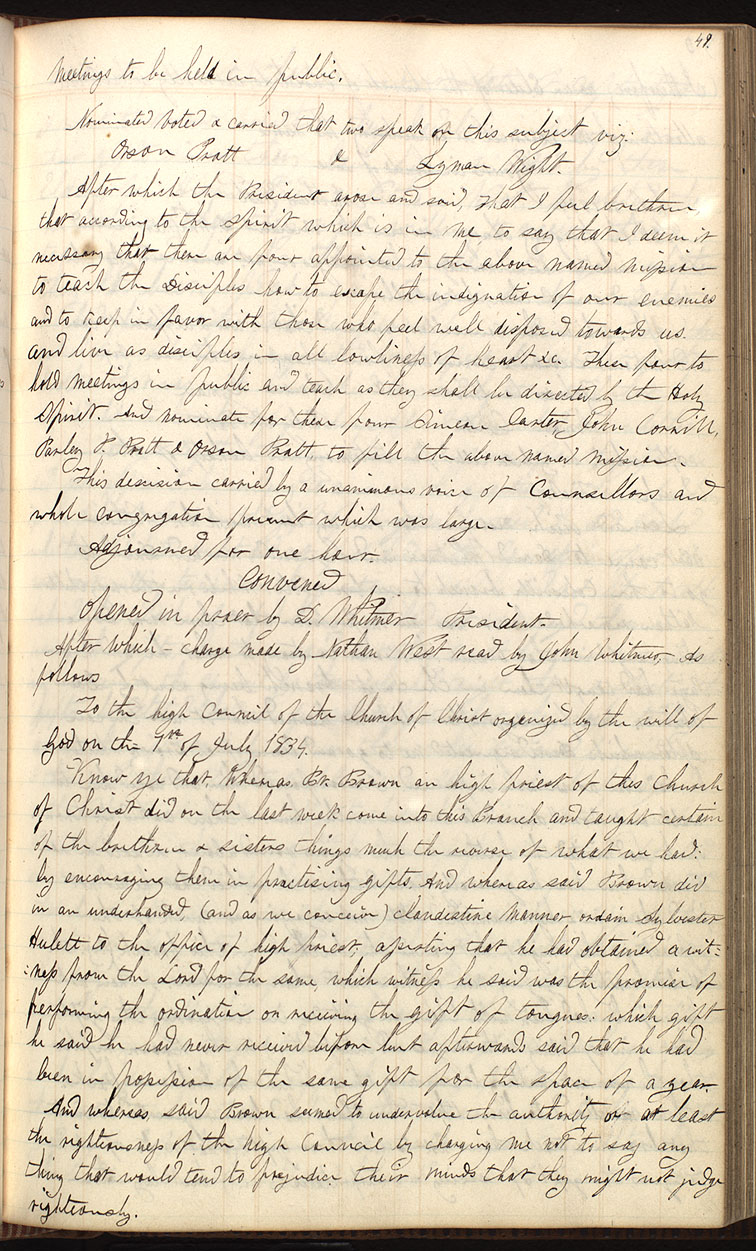 49.
meetings to be held in public.
Nominated voted & carried that two speak on this subject viz:
Orson Pratt & Lyman Wight.
After which the President arose and said, that I feel brethren,
that according to the spirit which is in me, to say that I deem it
necessary that there are four appointed to the above named mission
to teach the Disciples how to escape the indignation of our enemies
and to keep in favor with those who feel well disposed towards us.
and live as disciples in all lowliness of heart &c. These four to
hold meetings in public and teach as they shall be directed by the Holy
Spirit. And nominate for these four Simeon Carter, John Corrill,
Parley P. Pratt & Orson Pratt, to fill the above named mission.
This descision carried by a unanimous voice of Counsellors and
whole congregation present which was large.
Adjourned for one hour.
Convened
Opened in praer by D. Whitmer President.
After which – charge made by Nathan West read by John Whitmer, As
follows
To the high Council of the Church of Christ organized by the will of
God on the of July 1834.
Know ye that, whereas Br. Brown an high priest of this Church
of Christ did on the last week come into this Branch and taught certain
of the brethren & sisters things much the reverse of what we had:
by encouraging them in practising gifts. And whereas said Brown did
in an underhanded, (and as we conceive) clandestine manner, ordain Sylvester
Hulett to the office of high priest, asserting that he had obtained a wit:
:ness from the Lord for the same, which witness he said was the promise of
performing the ordination on receiving the gift of tongues: which gift
he said he had never received before but afterwards said that he had
been in possession of the same gift for the space of a year.
And whereas, said Brown seemed to undervalue the authority or at least
the righteousness of the high Council by charging me not to say any
thing that would tend to prejudice their minds that they might not judge
righteously.